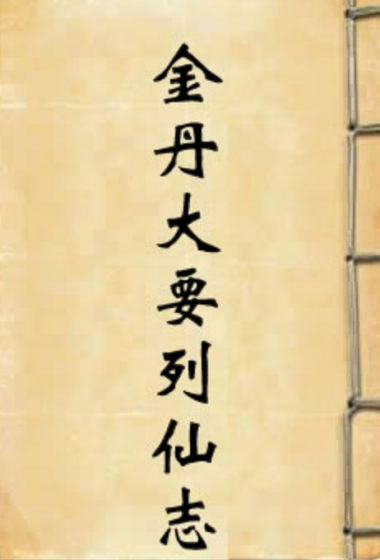 金丹大要列仙志